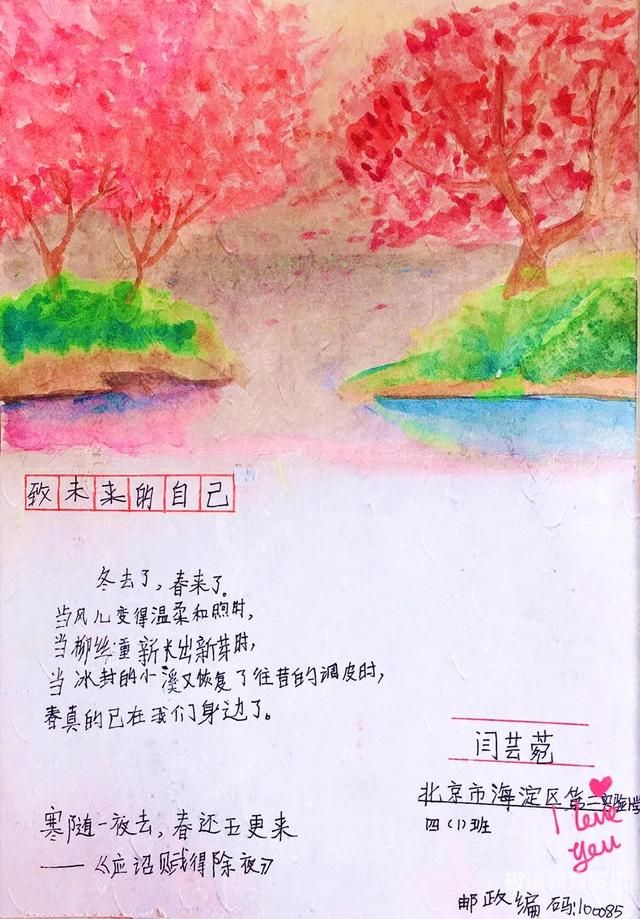 致未来的自己
冬去了，春来了。
当风儿变得温柔和煦时，
当柳丝重新长出新芽时，
当冰封的小溪又恢复了往昔的调皮时，
春真的已在我们身边了。
闫芸菀
北京市海淀区第二实验小学
四（1）班
I love you
寒随一夜去，春还五更来
——《应诏赋得除夜》
邮政编码：100085